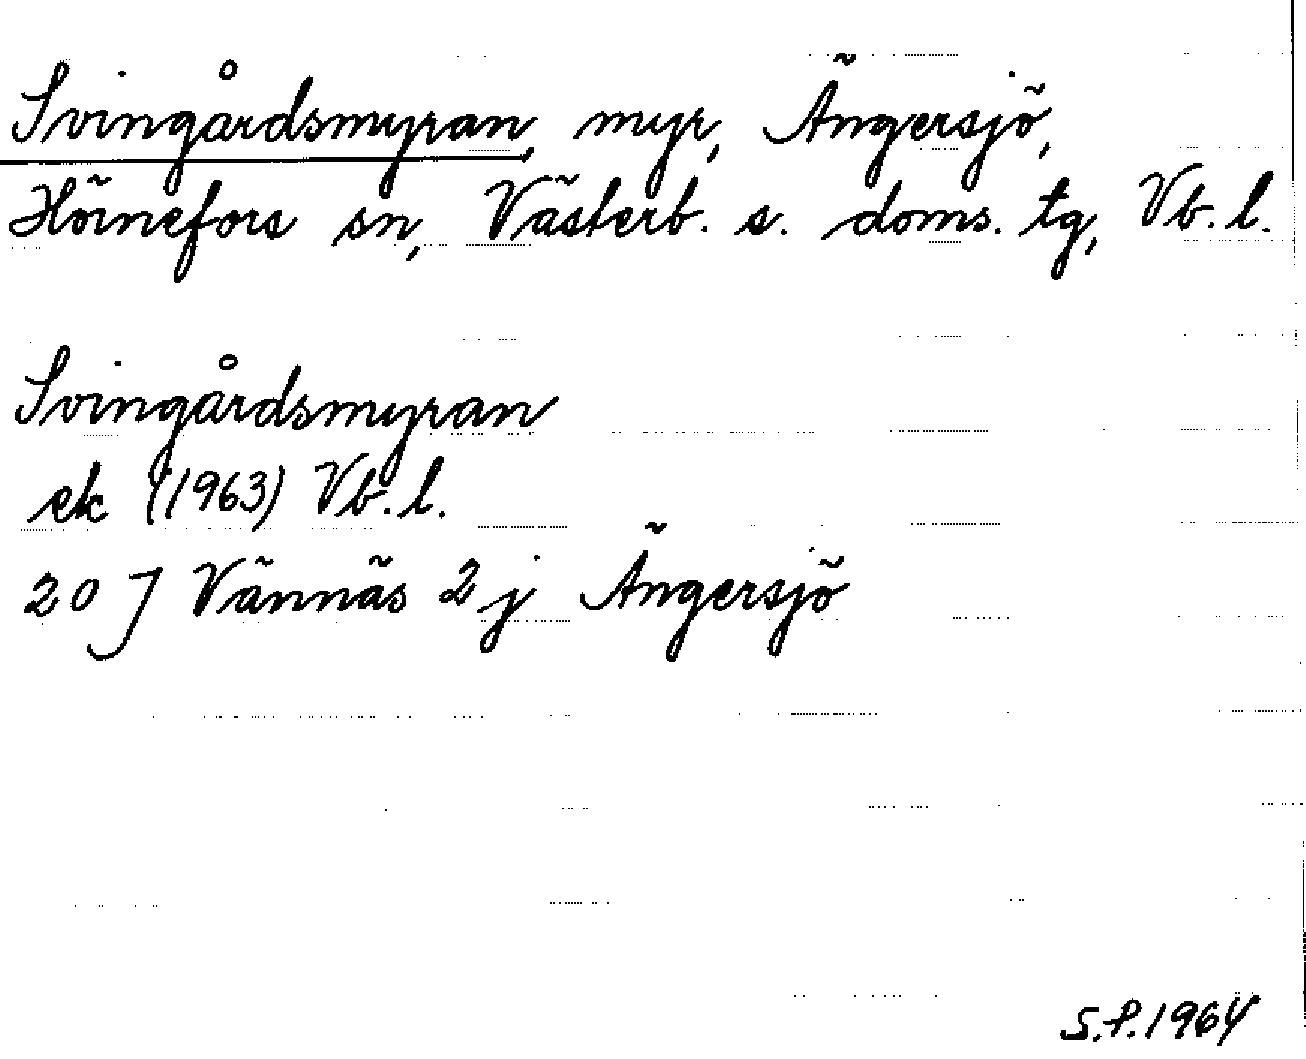 Svingårdsmyran, myr, Ängersjö,
Hörnefors sn, Västerb. s. doms. tg, Vb. l.
Svingårdsmyran
ek (1963) Vb. l.
20 J Vännäs 2 j Ängersjö
S.P. 1964